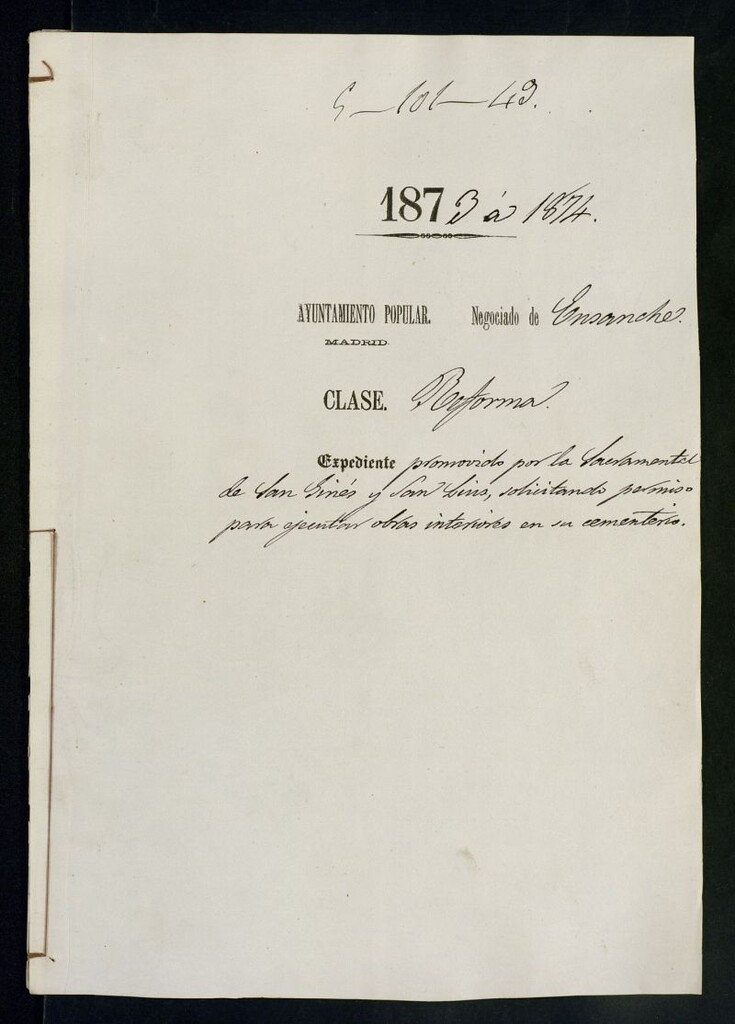 5-101-43.
1873 á 1874.
AYUNTAMIENTO POPULAR. Negociado de Ensanche.
MADRID.
CLASE. Reforma.
Expediente promovido por la Sacramental
de San Ginés y San Luis, solicitando permiso
para ejecutar obras interiores en su cementerio.